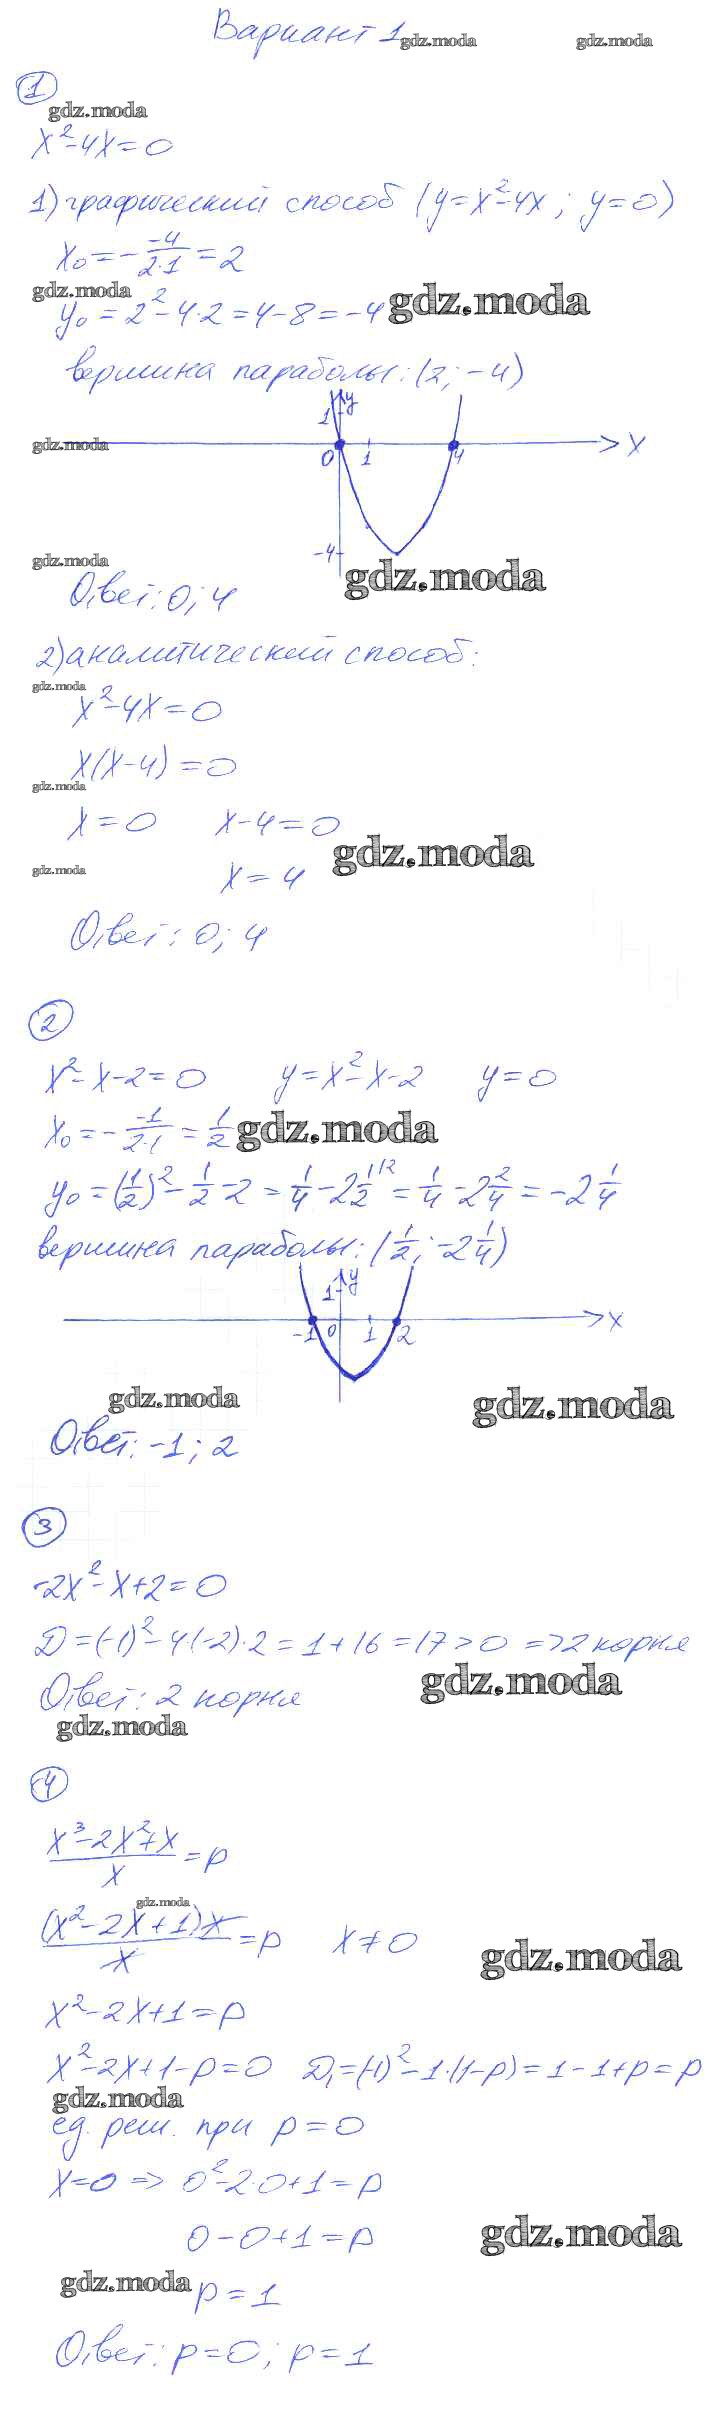 Вариант 1 gdz.moda gdz.moda
1
gdz.moda
x²-4x=0
1) графический способ (y=x²-4x; y=0)
x₀=-\frac{-4}{2·1}=2
gdz.moda
y₀=2²-4·2=4-8=-4 gdz.moda
вершина параболы: (2; -4)
y
1
gdz.moda 0 1 4 x
-4
gdz.moda
gdz.moda
Ответ: 0; 4
2) аналитический способ:
gdz.moda
x²-4x=0
x(x-4)=0
gdz.moda
x=0 x-4=0
gdz.moda
gdz.moda x=4
Ответ: 0; 4
2
x²-x-2=0 y=x²-x-2 y=0
x₀=-\frac{-1}{2·1}=\frac{1}{2} gdz.moda
y₀=(\frac{1}{2})²-\frac{1}{2}-2=\frac{1}{4}-2\frac{1}{2}^{\2}=\frac{1}{4}-2\frac{2}{4}=-2\frac{1}{4}
вершина параболы: (\frac{1}{2}; -2\frac{1}{4})
y
1
-1 0 1 2 x
gdz.moda gdz.moda
Ответ: -1; 2
3
-2x²-x+2=0
D=(-1)²-4·(-2)·2=1+16=17>0 => 2 корня
gdz.moda
Ответ: 2 корня
gdz.moda
4
\frac{x³-2x²+x}{x}=p
gdz.moda
\frac{(x²-2x+1)x}{x}=p x≠0 gdz.moda
x²-2x+1=p
x²-2x+1-p=0 D₁=(-1)²-1·(1-p)=1-1+p=p
gdz.moda
ед. реш. при p=0
x=0 => 0²-2·0+1=p
0-0+1=p gdz.moda
gdz.moda p=1
Ответ: p=0; p=1